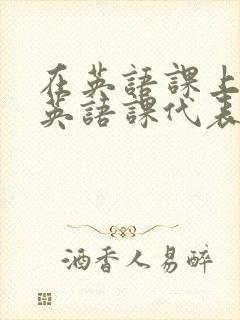 在英語課上
英語課代表
酒香人易醉